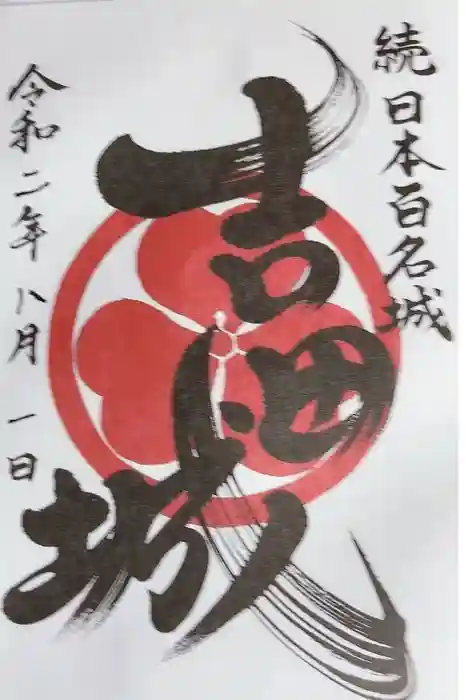 続日本百名城
吉田城
令和二年八月一日